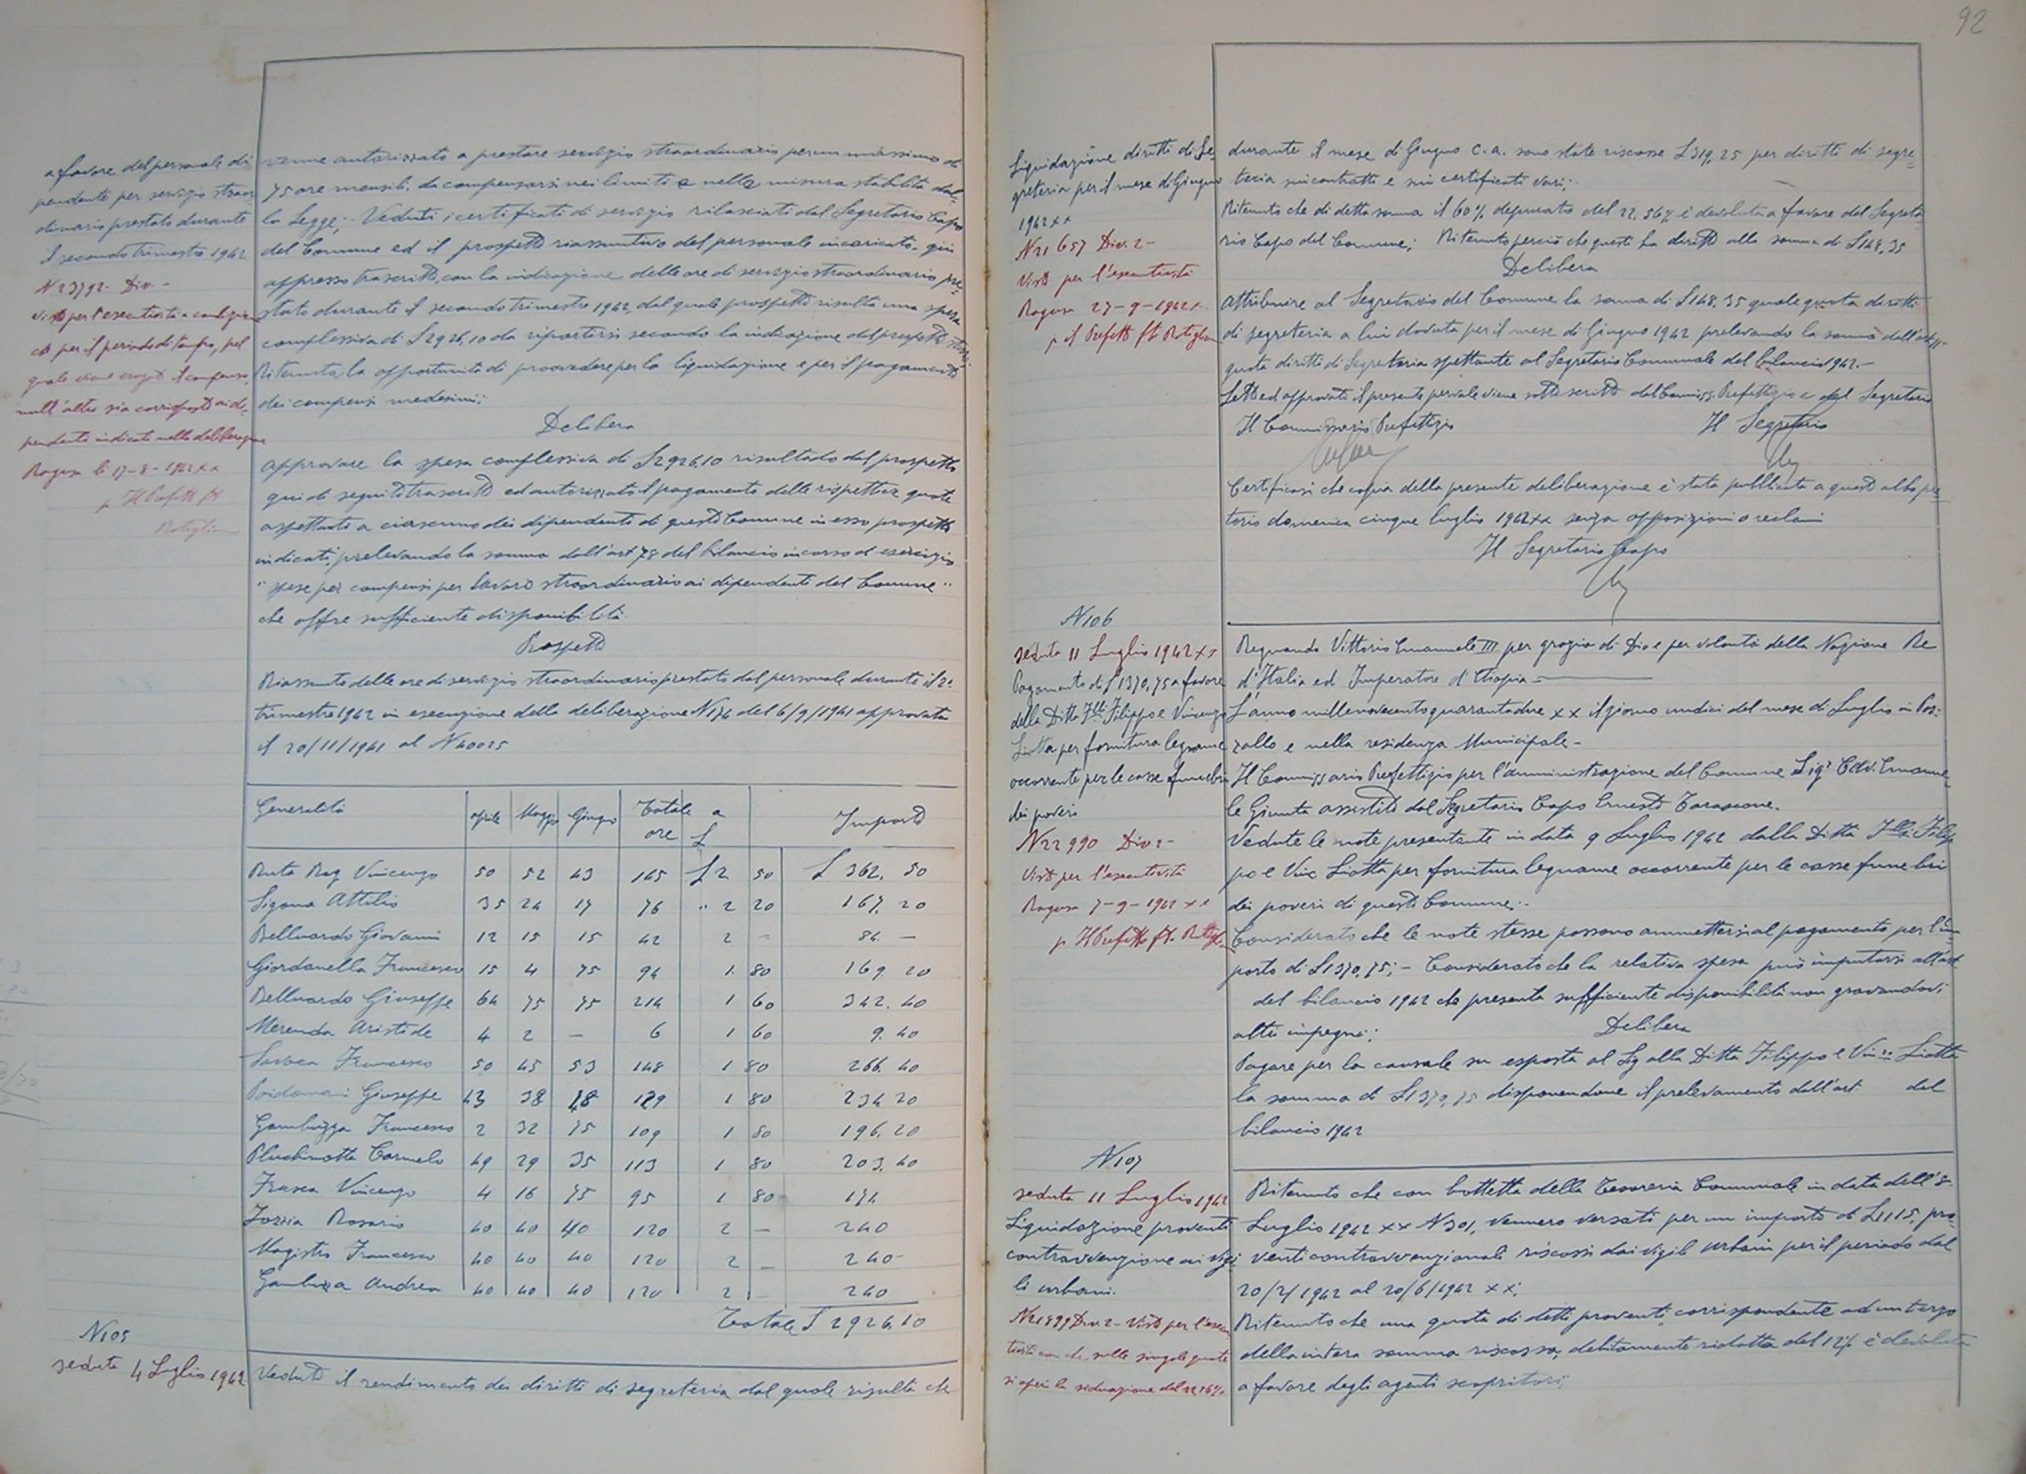 a favore del personale di
pendente per servizio straor
dinario prestato durante
il secondo trimestre 1942
N 23792. Div. -
visto per l'esecutività a condizio
che per il periodo di tempo, pel
quale viene erogato il compenso,
null'altro sia corrisposto ai di-
pendenti indicati nella deliberazione
Ragusa li 17-8-1942 XX
p Il Prefetto ft
venne autorizzato a prestare servizio straordinario per un massimo di
75 ore mensili, da compensarsi nei limiti e nella misura stabilita dal-
la Legge; Veduti i certificati di servizio rilasciati dal Segretario Capo
del Comune ed il prospetto riassuntivo del personale incaricato, qui
appresso trascritto, con la indicazione delle ore di servizio straordinario pre-
stato durante il secondo trimestre 1942, dal quale prospetto risulta una spesa
complessiva di £ 2926,10 da ripartirsi secondo la indicazione del prospetto stesso
Ritenuta la opportunità di provvedere per la liquidazione e per il pagamento
dei compensi medesimi;
Delibera
approvare la spesa complessiva di £ 2926.10 risultato dal prospetto
qui di seguito trascritto ed autorizzato il pagamento delle rispettive quote
aspettante a ciascuno dei dipendenti di questo Comune in esso prospetto
indicati, prelevando la somma dall'art 78 del bilancio in corso d'esercizio
" spese per compensi per lavoro straordinario ai dipendenti del Comune "
che offre sufficiente disponibilità.
Prospetto
Riassunto delle ore di servizio straordinario prestato dal personale durante il 2°
trimestre 1942 in esecuzione della deliberazione N 174 del 6/9/1941 approvata
il 20/11/1941 al N 40025
Generalità aprile Maggio Giugno Totale ore a £ Importo
Ruta Rag Vincenzo 50 52 43 145 £ 2 50 £ 362. 50
Sigona Attilio 35 24 17 76 " 2 20 167. 20
Belluardo Giovanni 12 15 15 42 2 - 84. -
Giordanella Francesco 15 4 75 94 1. 80 169 20
Belluardo Giuseppe 64 75 75 214 1 60 342. 40
Merenda Aristide 4 2 - 6 1 60 9. 40
Francesco 50 45 53 148 1 80 266. 40
Poidomani Giuseppe 43 38 48 129 1 80 234 20
Gambuzza Francesco 2 32 75 109 1 80 196. 20
Pluchinotta Carmelo 49 29 35 113 1 80 203. 40
Frasca Vincenzo 4 16 75 95 1 80 174
Rosario 40 40 40 120 2 - 240
Magistro Francesco 40 40 40 120 2 - 240 -
Gambuzza Andrea 40 40 40 120 2 - 240
Totale £ 2926.10
N 105
seduta 4 Luglio 1942
Veduto il rendimento dei diritti di segreteria dal quale risulta che
92
Liquidazione diritti di Se
greteria per il mese di Giugno
1942 XX
N 21657 Div. 2 -
Visto per l'esecutività
Ragusa 27-9-1942 X.
p il Prefetto ft
durante il mese di Giugno c.a. sono state riscosse £ 319,25 per diritti di segre-
teria sui contratti e sui certificati vari;
Ritenuto che di detta somma il 60% depurato del 22,56% è devoluta a favore del Segreta
rio Capo del Comune; Ritenuto perciò che questi ha diritto alla somma di £ 148,35
Delibera
attribuire al Segretario del Comune la somma di £ 148.35 quale quota diritti
di segreteria a lui dovuta per il mese di Giugno 1942 prelevando la somma dall'art
quota diritti di Segreteria spettante al Segretario Comunale del bilancio 1942. -
Letto ed approvato il presente verbale viene sottoscritto dal Commiss. Prefettizio e dal Segretario
Il Commissario Prefettizio Il Segretario
Certificasi che copia della presente deliberazione è stata pubblicata a questo albo pre-
torio domenica cinque luglio 1942 XX senza opposizioni o reclami
Il Segretario Capo
N 106
seduta 11 Luglio 1942 XX
Pagamento di £ 1370,75 a favore
della Ditta F.lli Filippo e Vincenzo
Liotta per fornitura legname
occorrente per le casse funebri
dei poveri
N 22990 Div 2 -
Visto per l'esecutività
Ragusa 7-9-1942 XX
p Il Prefetto ft.
Regnando Vittorio Emanuele III per grazia di Dio e per volontà della Nazione Re
d'Italia ed Imperatore d'Etiopia
L'anno millenovecentoquarantadue XX il giorno undici del mese di Luglio in Poz-
zallo e nella residenza Municipale -
Il Commissario Prefettizio per l'amministrazione del Comune Sigr Cav. Emanue
le Giunta assistito dal Segretario Capo Ernesto Tarascone.
Vedute le note presentante in data 9 Luglio 1942 dalla Ditta F.lli Filip
po e Vinc Liotta per fornitura legname occorrente per le casse funebri
dei poveri di questo Comune;
Considerato che le note stesse possono ammettersi al pagamento per l'im-
porto di £ 1370,75; - Considerato che la relativa spesa può imputarsi all'art
del bilancio 1942 che presenta sufficiente disponibilità non gravandovi
altri impegni;
Delibera
Pagare per la causale su esposta al Sig alla Ditta Filippo e Vinc Liotta
la somma di £ 1370,75 disponendone il prelevamento dall'art del
bilancio 1942
N 107
seduta 11 Luglio 1942
Liquidazione proventi
contravvenzione ai vigi
li urbani.
N 21899 Div 2 - Visto per l'esecu
tività con che sulle singole quote
si operi la riduzione del 22.56%
Ritenuto che con bolletta della Tesoreria Comunale in data dell'8
Luglio 1942 XX N 301, vennero versati per un importo di £ 1115, pro-
venti contravvenzionali riscossi dai vigili urbani per il periodo dal
20/2/1942 al 20/6/1942 XX;
Ritenuto che una quota di detti proventi, corrispondente ad un terzo
della intera somma riscossa, debitamente ridotta del 12% è devoluta
a favore degli agenti scopritori;